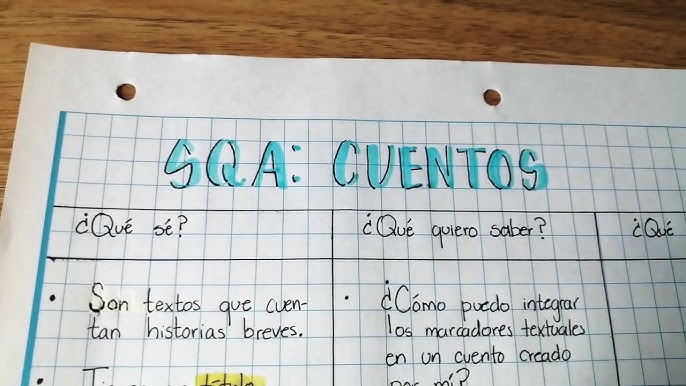 SQA: CUENTOS
¿Qué sé?
¿Qué quiero saber?
¿Qué
• Son textos que cuen-
tan historias breves.
•
título
• ¿Cómo puedo integrar
los marcadores textuales
en un cuento creado
por mí?